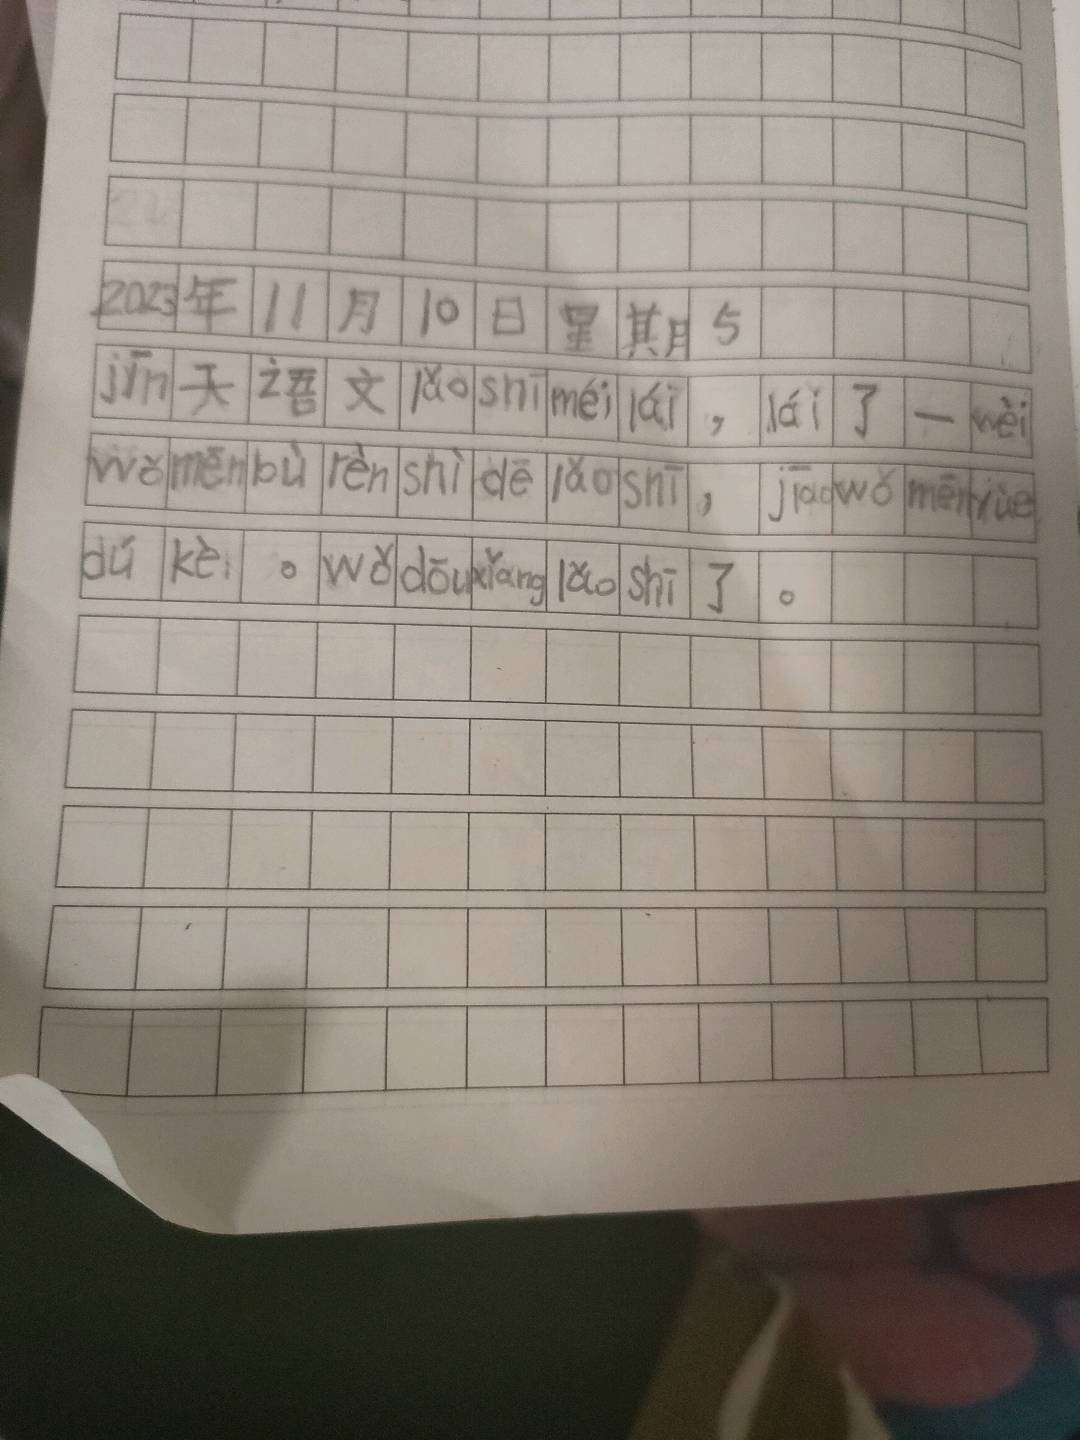 2023年11月10日星期5
jīn天语文lǎoshīméilái，lái了一wèi
wǒmēnbùrènshìdēlǎoshī，jiāowǒmēnyùe
dúkè。wǒdōuxiǎnglǎoshī了。